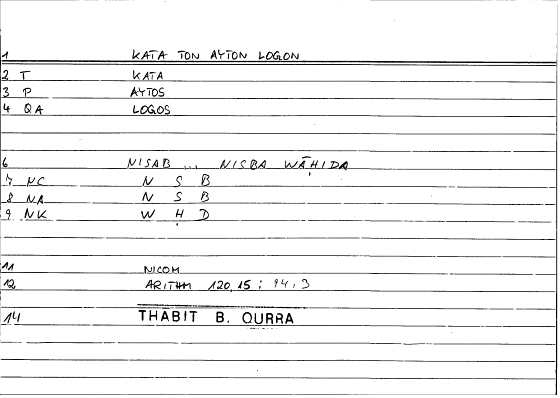 1 KATA TON AYTON LOGON
2 T KATA
3 P AYTOS
4 QA LOGOS
6 NISAB ... NISBA WĀḤIDA
7 NC N S B
8 NA N S B
9 NK W Ḥ D
11 NICOM
12 ARITHM 120,15 : 94,3
14 THABIT B. QURRA